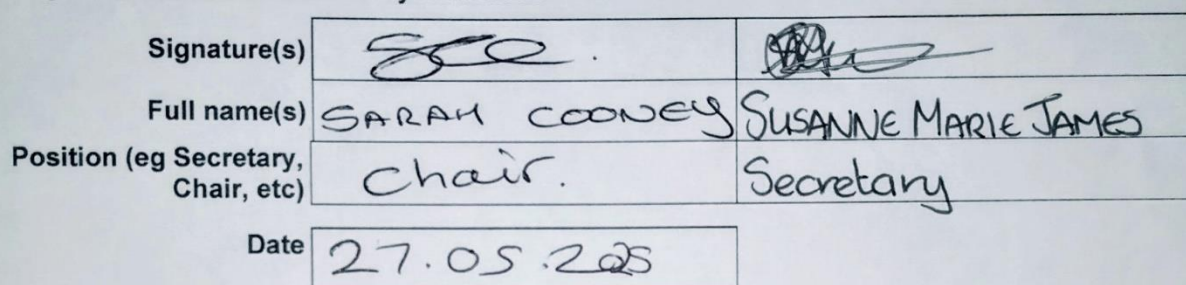 Signature(s)
Full name(s) SARAH COONEY SUSANNE MARIE JAMES
Position (eg Secretary, Chair. Secretary
Chair, etc)
Date 27.05.2025